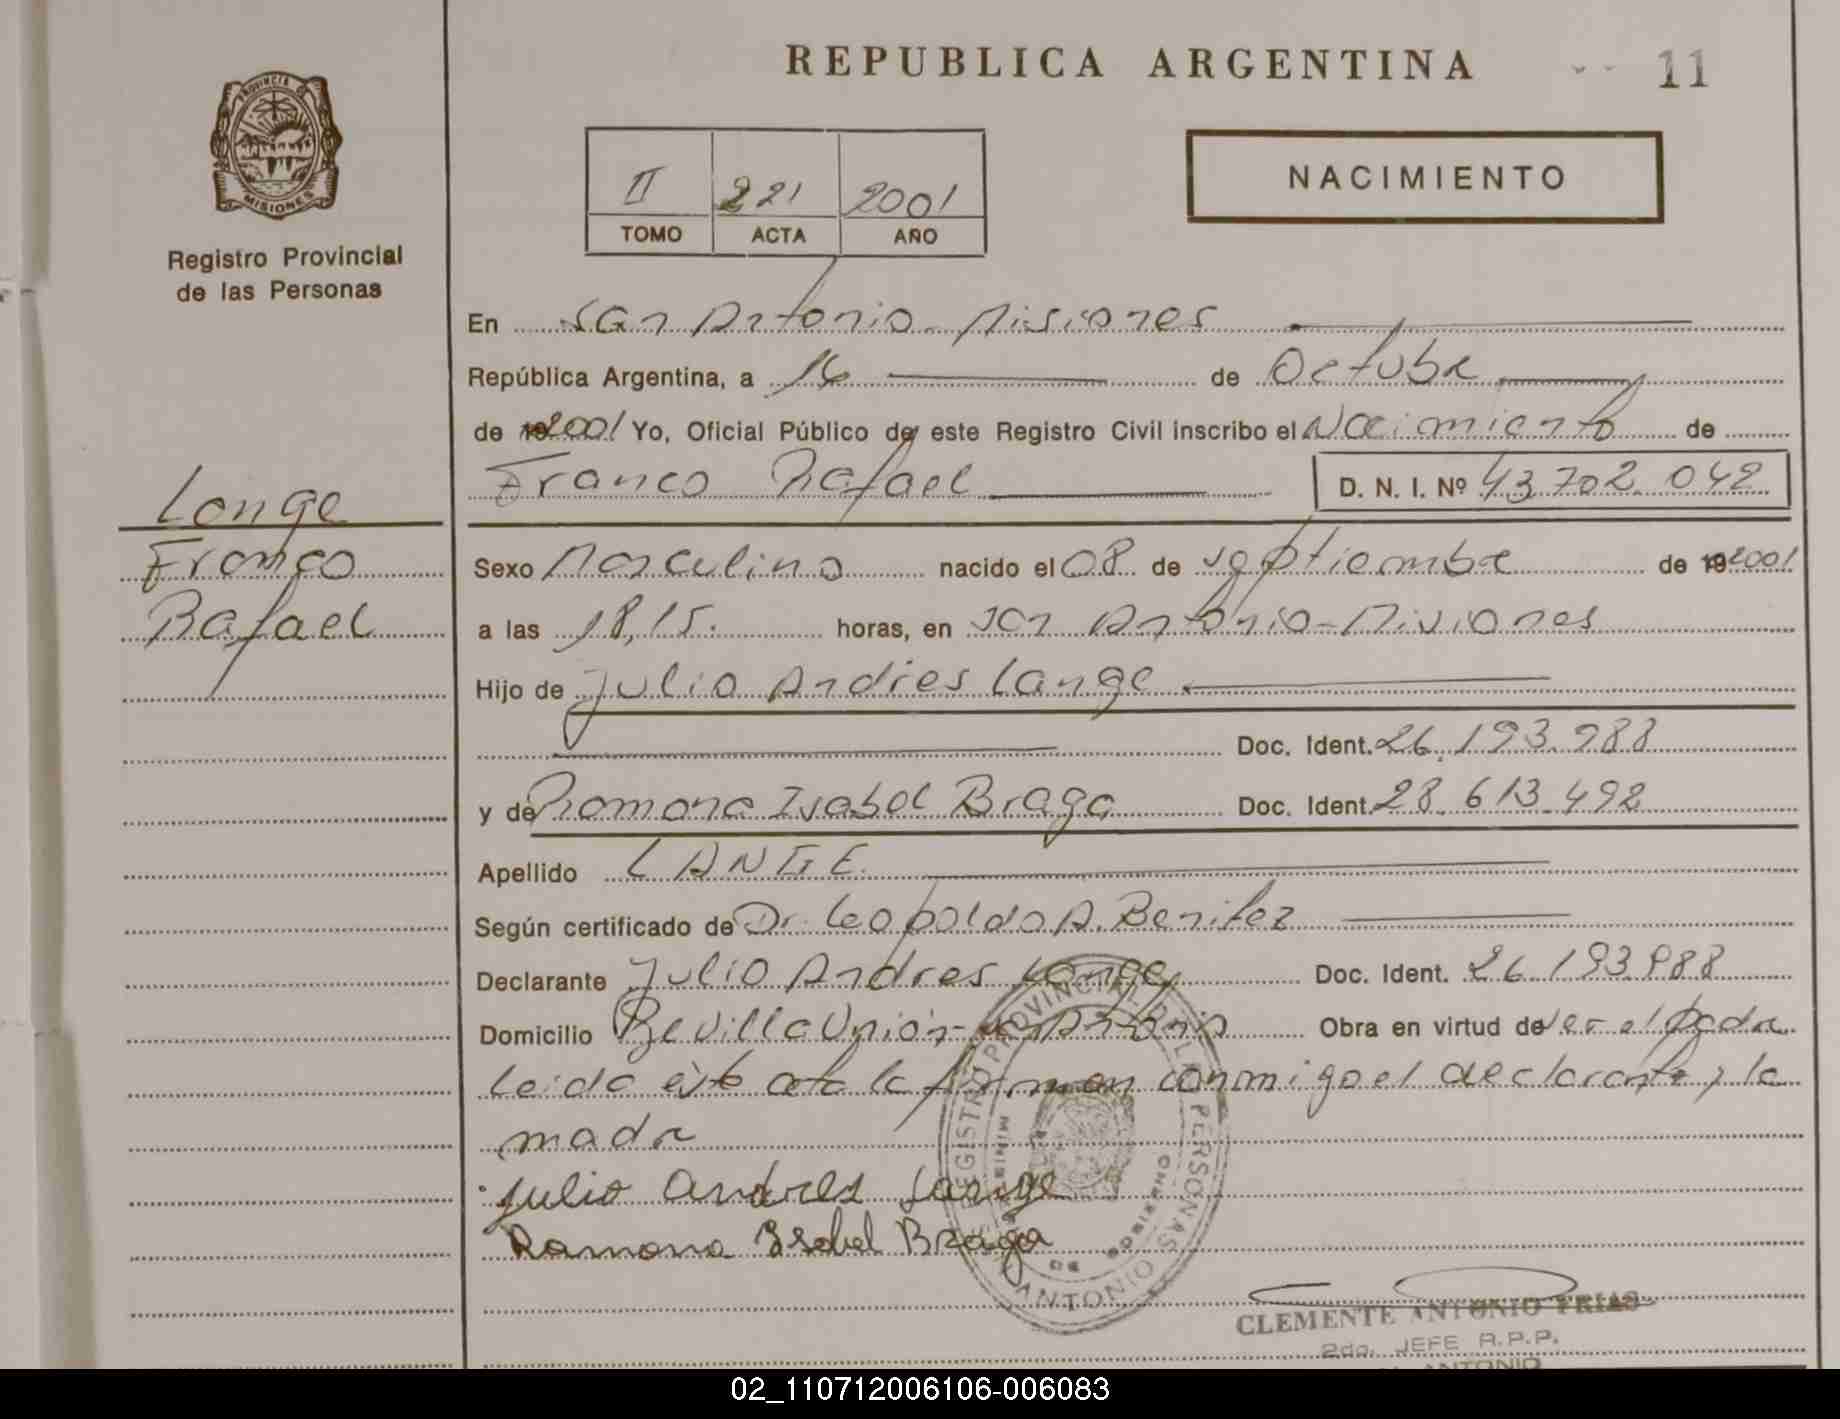 REPUBLICA ARGENTINA
11
PROVINCIA DE
MISIONES
Registro Provincial
de las Personas
II 221 2001
TOMO ACTA AÑO
NACIMIENTO
En San Antonio - Misiones
República Argentina, a 16 de Octubre
de 2001 Yo, Oficial Público de este Registro Civil inscribo el Nacimiento de
Franco Rafael D. N. I. Nº 43.702.042
Lange
Franco
Rafael
Sexo Masculino nacido el 08 de septiembre de 2001
a las 18,15. horas, en San Antonio - Misiones
Hijo de Julio Andres Lange
Doc. Ident. 26.193.988
y de Ramona Isabel Braga Doc. Ident. 28.613.492
Apellido LANGE
Según certificado de Dr. Leopoldo A. Benitez
Declarante Julio Andres Lange Doc. Ident. 26.193.988
Domicilio Villa Unión - San Antonio Obra en virtud de ser el padre
Leida este acta la firman conmigo el declarante y la
madre
Julio Andres Lange
Ramona Isabel Braga
REGISTRO PROVINCIAL DE LAS PERSONAS
ANTONIO
CLEMENTE ANTONIO FRIAS
2do. JEFE R.P.P.
ANTONIO
02_110712006106-006083